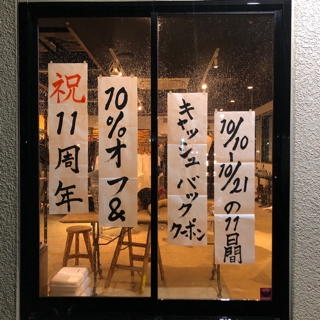 祝11周年
10%オフ&
キャッシュバッククーポン
10/10-10/21の11日間